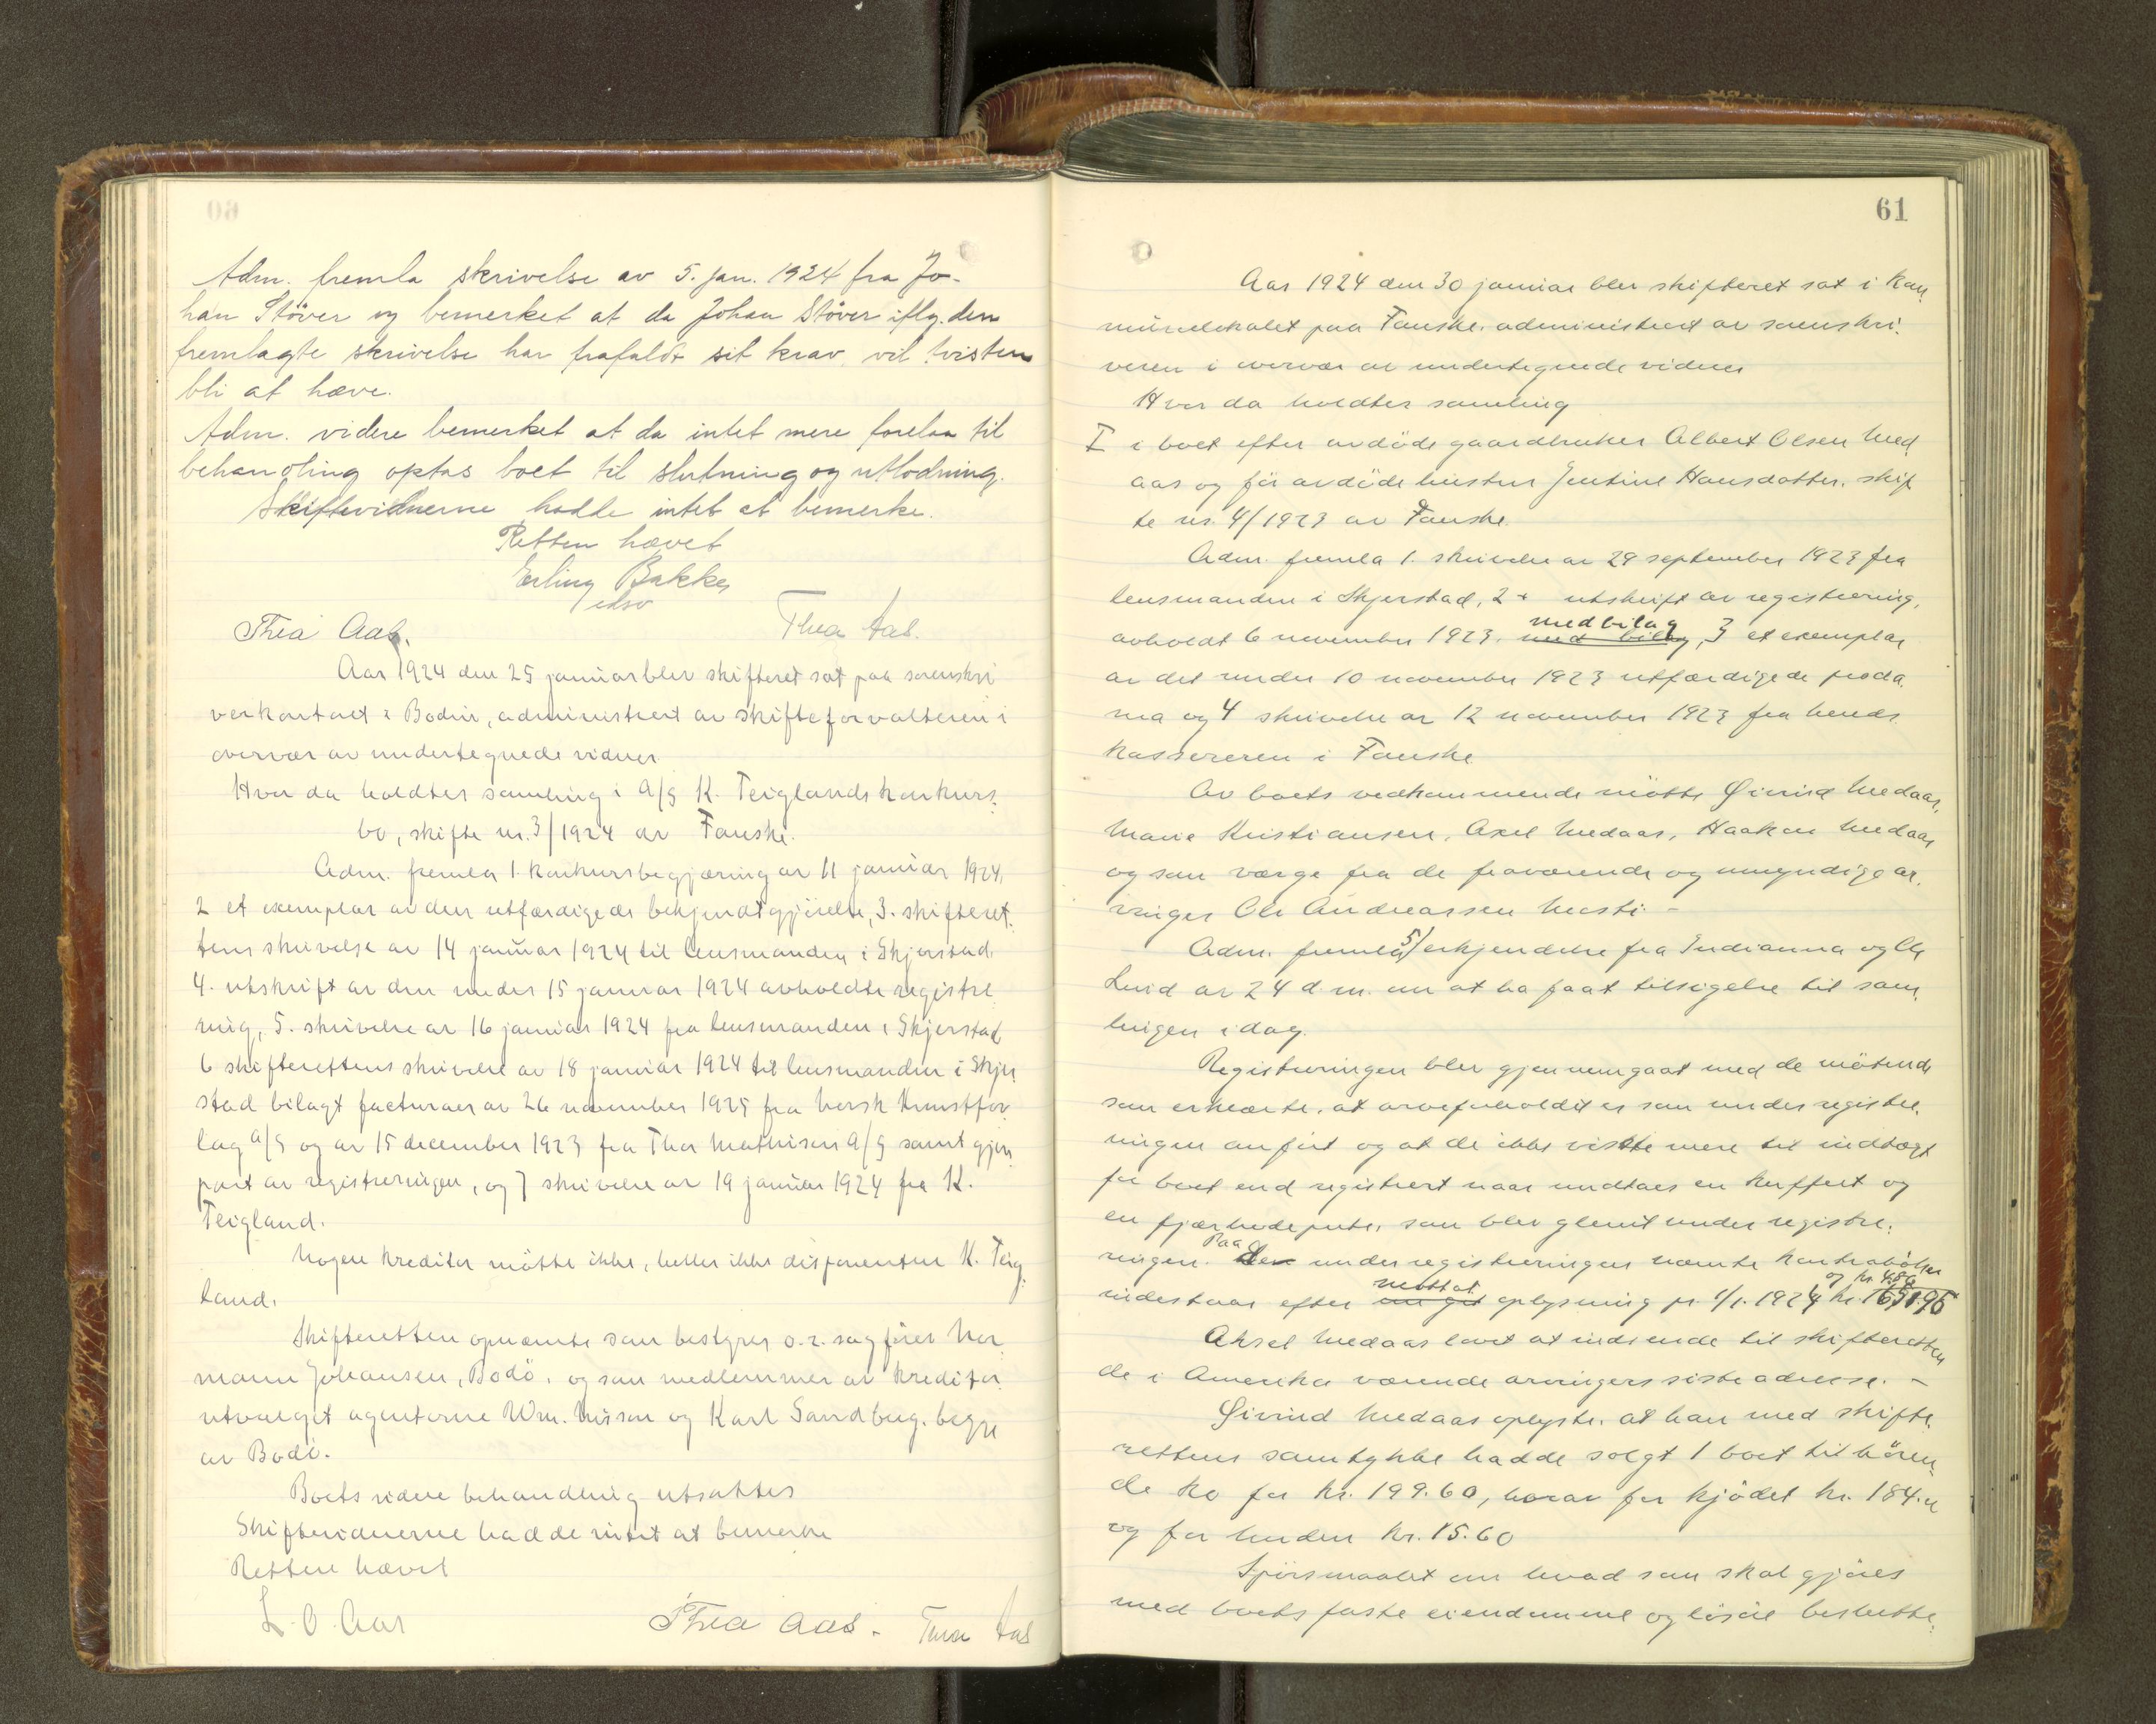 Adm. fremla skrivelse av 5. jan. 1924 fra Jo-
han Støver og bemerket at da Johan Støver iflg. den
fremlagte skrivelse har frafaldt sit krav, vil tvisten
bli at hæve.
Adm. videre bemerket at da intet mere forelaa til
behandling optas boet til slutning og utlodning.
Skiftevidnerne hadde intet at bemerke.
Retten hævet
Erling Bakke
edsv
Thea Aas. Thea Aas.
Aar 1924 den 25 januar blev skifteret sat paa sorenskri
verkontoret i Bodin, administrert av skifteforvalteren i
overvær av undertegnede vidner
Hvor da holdtes samling i A/S K. Teiglands konkurs
bo, skifte nr. 3/1924 av Fauske.
Adm. fremla 1. konkursbegjæring av 11 januar 1924,
2 et exemplar av den utfærdigede bekjendtgjörelse, 3. skifteret
tens skrivelse av 14 januar 1924 til lensmanden i Skjerstad,
4. utskrift av den under 15 januar 1924 avholdte registre
ring, 5. skrivelse av 16 januar 1924 fra lensmanden i Skjerstad
6 skifterettens skrivelse av 18 januar 1924 til lensmanden i Skjer
stad bilagt facturaer av 26 november 1925 fra Norsk Kunstfor
lag A/S og av 15 december 1923 fra Thor Mathisen A/S samt gjen
part av registreringen, og 7 skrivelse av 19 januar 1924 fra K.
Teigland.
Nogen kreditor mötte ikke, heller ikke disponenten K. Teig
land.
Skifteretten opnævnte som bestyrer o.r. sagförer Her
mann Johansen, Bodö, og som medlemmer av kreditor
utvalget agenterne Wm. Nilson og Karl Sandberg, begge
av Bodö.
Boets videre behandling utsattes
Skiftevidnerne hadde intet at bemerke
Retten hævet
L. O. Aas Thea Aas. Thea Aas
61
Aar 1924 den 30 januar blev skifteret sat i kom
munelokalet paa Fauske, administrert av sorenskri
veren i overvær av undertegnede vidner
Hvor da holdtes samling
I i boet efter avdöde gaardbruker Albert Olsen Med
aas og för avdöde hustru Jentine Hansdatter, skif
te nr. 4/1923 av Fauske.
Adm. fremla 1. skrivelse av 29 september 1923 fra
lensmanden i Skjerstad, 2 utskrift av registrering,
avholdt 6 november 1923, med bilag med bilag, 3 et exemplar
av det under 10 november 1923 utfærdigede procla
ma og 4 skrivelse av 12 november 1923 fra herreds
kassereren i Fauske
Av boets vedkommende mötte Øivind Medaas,
Marie Kristiansen, Axel Medaas, Haakon Medaas
og som værge fra de fraværende og umyndige ar
vinger Ole Andreassen Mosti. -
Adm. fremla 5) erkjendelse fra Indianna og Ole
Lund av 24 d.m. om at ha faat tilsigelse til sam
lingen idag.
Registreringen blev gjennemgaat med de mötende
som erklærte, at arveforholdet er som under registre
ringen anfört og at de ikke visste mere til indtægt
for boet end registrert naar undtaes en kuffert og
en fjærhodepute, som blev glemt under registre
ringen. Paa den under registreringen nævnte kontraböker
indestaar efter mottat opplysning pr. 1/1. 1924 kr. 1651.95 og kr. 4.80
Aksel Medaas lovet at indsende til skifteretten
de i Amerika værende arvingers siste adresse. -
Øivind Medaas oplyste, at han med skifte
rettens samtykke hadde solgt 1 boet tilhören
de ko for kr. 199.60, hvorav for kjödet kr. 184.00
og for huden kr. 15.60
Spörsmaalet om hvad som skal gjöres
med boets faste eiendomme og lösöre beslutte